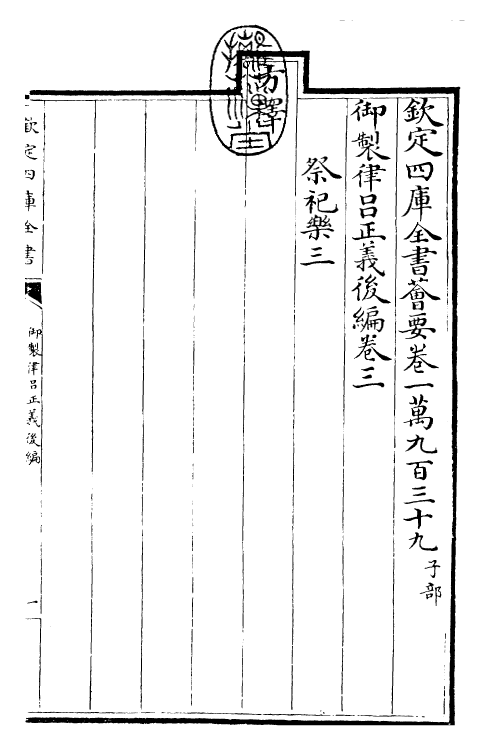 欽定四庫全書薈要卷一萬九百三十九 子部
御製律呂正義後編卷三
祭祀樂三
欽定四庫全書
御製律呂正義後編
一